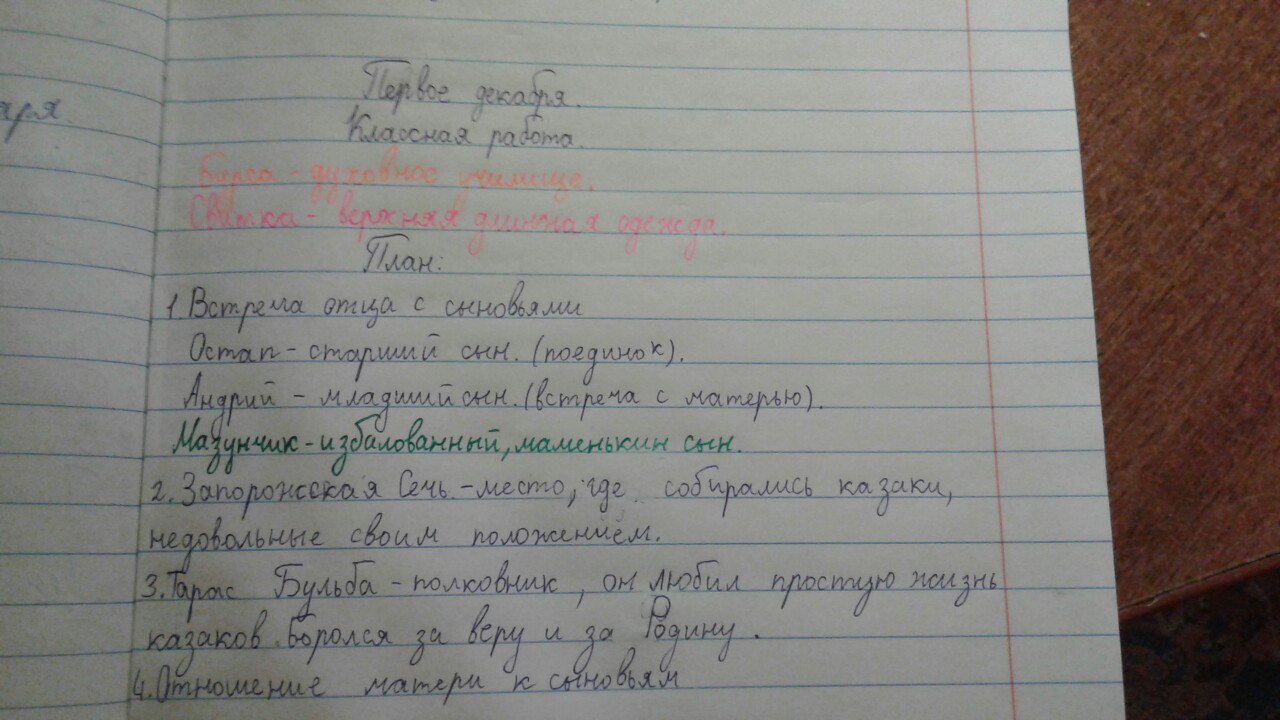 аря.
Первое декабря.
Классная работа.
Бурса - духовное училище.
Свитка - верхняя длинная одежда.
План:
1. Встреча отца с сыновьями
Остап - старший сын. (поединок).
Андрий - младший сын. (встреча с матерью).
Мазунчик - избалованный, маменькин сын.
2. Запорожская Сечь. - место, где собирались казаки,
недовольные своим положением.
3. Тарас Бульба - полковник, он любил простую жизнь
казаков. Боролся за веру и за Родину.
4. Отношение матери к сыновьям